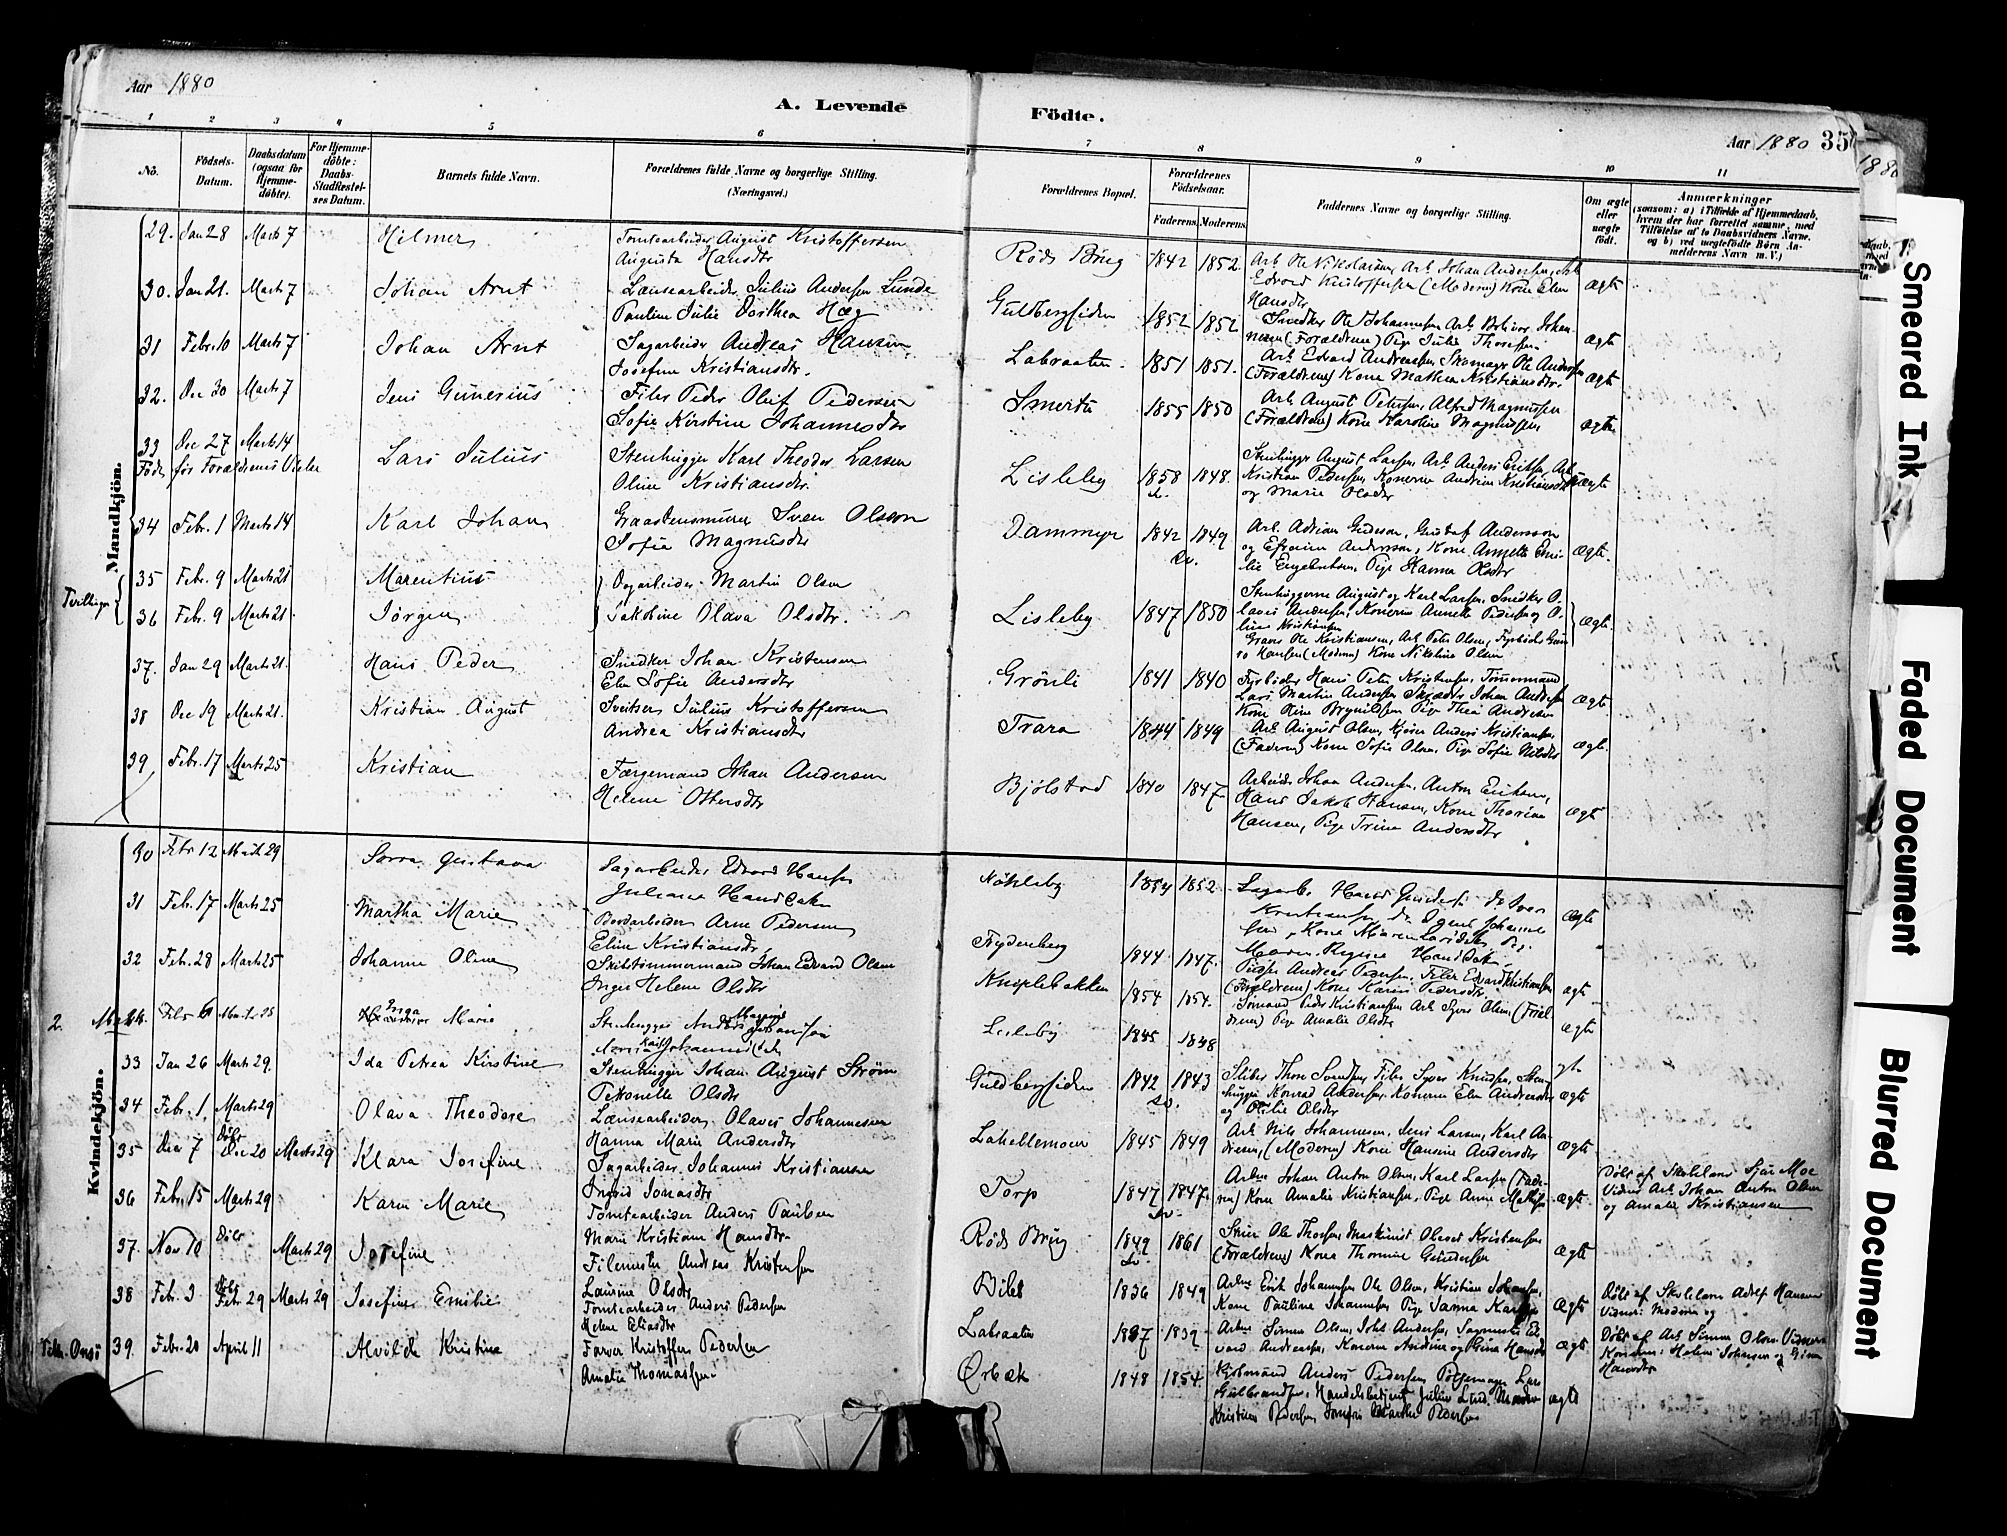 Aar 1880
A. Levende Födte.
Aar 1880 35
1 2 3 4 5 6 7 8 9 10 11
No.
Födsels-Datum.
Daabsdatum (ogsaa for Hjemme-döbte).
For Hjemme-döbte: Daabs-Stadfæstel-ses Datum.
Barnets fulde Navn.
Forældrenes fulde Navne og borgerlige Stilling. (Næringsvei.)
Forældrenes Bopæl.
Forældrenes Födselsaar.
Faderens. Moderens.
Faddernes Navne og borgerlige Stilling.
Om ægte eller uægte födt.
Anmærkninger
(saasom: a) i Tilfælde af Hjemmedaab, hvem der har forrettet samme, med Tilföielse af to Daabsvidners Navne, og b) ved uægtefödte Börn An-melderens Navn m. V.)
Mandkjön.
29. Jan 28 Marts 7 Hilmer Tomtearbeider August Kristoffersen
Augusta Hansdtr Röds Brug 1842 1852 Arb. Ole Nikolaisen, Arb. Johan Andersen, Arb.
Edvard Kristoffersen (Moderen) Kone Elen Hansdtr ægte
30. Jan 21. Marts 7 Johan Arnt Lænsearbeider Julius Andersen Lunde
Pauline Julie Dorthea Høg Guldbergsiden 1852 1852 Snedker Ole Johannesen Arb.
(Forældrene) Pige Julie Thoresen ægte
31 Febr. 10 Marts 7 Johan Arnt Sagarbeider Andreas Hansen
Josefine Kristiansdtr. Labraaten. 1851 1851. Arb. Edvard Andreassen, Skomager Ole Andersen
(Forældrene) Kone Mathea Kristiansdtr. ægte
32. Dec 30 Marts 7 Jens Gunerius Filer Peder Oluf Pedersen
Sofie Kirstine Johannesdtr Smertu 1855 1850 Arb. August Petersen, Alfred Magnussen
(Forældrene) Kone Karoline Magnussen ægte
33 Dec 27 Marts 14 Lars Julius Stenhugger Karl Theodor Larsen
Födt för Forældrenes Vielse
Oline Kristiansdtr. Lisleby 1858 1848. Stenhugger August Larsen Arb. Anders Eriksen, Arb.
Kristian Pedersen, Konerne Andrine Kristiansdtr
og Marie Olsdtr uægte
34 Febr. 1 Marts 14 Karl Johan Graastensmurer Sven Olsson
Sofie Magnusdtr Dammyr 1842 1849 Arb. Adrian Gudeson, Gustaf Andersson
og Efraim Andersson, Kone Annette
Pige Hanna Olsdtr ægte.
Tvillinger
35 Febr. 9 Marts 21 Marentius Dagarbeider Martin Olsen
36 Febr. 9 Marts 21. Jörgen Jakobine Olava Olsdtr. Lisleby 1847 1850 Stenhuggerne August og Karl Larsen, Snedker O-
laves Andersen, Konerne Annette Pedersen og O-
line Kristiansen
Graver Ole Kristiansen, Arb. Peter Olsen, Fyrböder
Hansen (Moderen) Kone Nikoline Olsen ægte.
37. Jan 29 Marts 21. Hans Peder Snedker Johan Kristensen
Elen Sofie Andersdtr Grönli 1841 1840 Fyrböder Hans Peter Kristensen, Tömmermand
Lars Martin Andersen Skrædder Johan Andersen
Kone Oline Brynildsen Pige Thea Andresen ægte
38 Dec 19 Marts 21. Kristian August Sveitser Julius Kristoffersen
Andrea Kristiansdtr Trara 1844 1849 Arb. August Olsen, Anders Kristiansen,
(Faderen) Kone Sofie Olsen, Pige Sofie Nilsdtr ægte.
39 Febr. 17 Marts 25 Kristian Færgemand Johan Andersen
Helene Ottersdtr Bjölstad 1840 1847 Arbeider Johan Andersen, Anton Eriksen,
Hans Jakob Hansen, Kone Thorine
Hansen, Pige Trine Andersdtr ægte
Kvindekjön.
30 Febr 12 Marts 29 Sarra Gustava Sagarbeider Edvard Hansen
Juliane Hansdatr Nökleby 1854 1852 Sagarb. Hans Gundersen
Kristiansen ægte
31 Febr. 17 Marts 25 Martha Marie Bordarbeider Arne Pedersen
Eline Kristiansdtr Frydenberg 1844 1847. Andreas Pedersen, Filer Edvard Kristiansen
(Forældrene) Kone Karen Pedersdtr ægte
32 Febr. 28 Marts 25 Johanne Oline Skibstömmermand Johan Edvard Olsen
Inger Helene Olsdtr Kniplebakken 1854 1854. Sömand Peder Kristiansen Arb. Syver Olsen, (Foræl-
drene) Pige Amalie Olsdtr ægte
Febr 6 Inga Marie Stenhugger Anders Magnus Johansen
Johannesdtr Lisleby 1845 1848
33 Jan 26 Marts 29. Ida Petrea Kirstine Stenhugger Johan August Ström
Petronelle Olsdtr Guldbergsiden 1842 1843 Sliber Thore Syver Knudsen, Sten-
hugger Konrad Andersen, Konerne Elen Andersdtr
og Otilie Olsdtr ægte
34 Febr. 1. Marts 29 Olava Theodore Lænsearbeider Olaves Johannesen
Hanna Marie Andersdtr 1845 1849 Arb. Nils Johannesen, Jens Larsen, Karl An-
dresen, (Moderen) Kone Hansine Andersdtr ægte
35 Dec 7 Döbt Dec 20 Marts 29 Klara Josefine Sagarbeider Johannes Kristiansen
Ingrid Jonasdtr Torp 1847 1847. Arbne Johan Anton Olsen, Karl Larsen (Fade-
ren) Kone Amalie Kristiansen, Pige Anne ægte Döbt af Skolelærer Moe
Vidner Arb. Johan Anton Olsen
og Amalie Kristiansen
36 Febr. 15 Marts 29 Karen Marie Tomtearbeider Anders Paulsen
Maren Kristiane Hansdtr. Röds Brug 1849 1861 Ole Thoresen, Maskinist Oluest Kristiansen
(Forældrene) Kone Thomine Gundersen ægte
37. Nov 10 Döbt Marts 29 Josefine Filemester Andreas Kristensen
Laurine Olsdtr Bilet 1836 1849 Arbne Erik Johannesen Ole Olsen, Kristian Johansen,
Kone Pauline Johannesen Pige Janna ægte Döbt af Skolelærer Adolf Hansen
Vidner: Moderen og
38 Febr. 3 Döbt Febr 29 Marts 29 Josefine Emilie Tomtearbeider Anders Pedersen
Helene Eliasdtr Labraaten 1837 1839 Arbne Simen Olsen, Johs Andersen, Sagmester Ed-
vard Andreassen, Konerne og Gina Hansdtr ægte Döbt af Arb. Simen Olsen Vidner
Konerne: Helene Johansen og Gina
Hansdtr
Tilh. Onsö 39. Febr. 20 April 11 Alvilde Kristine Farver Kristoffer Pedersen
Amalie Thomassen. Örbæk 1848 1854. Anders Pedersen, Lars
Gulbrandsen, Handelsbetjent Julius Lund
Kristian Pedersen Jomfru Marthe Pedersen ægte
Smeared Ink
Faded Document
Blurred Document